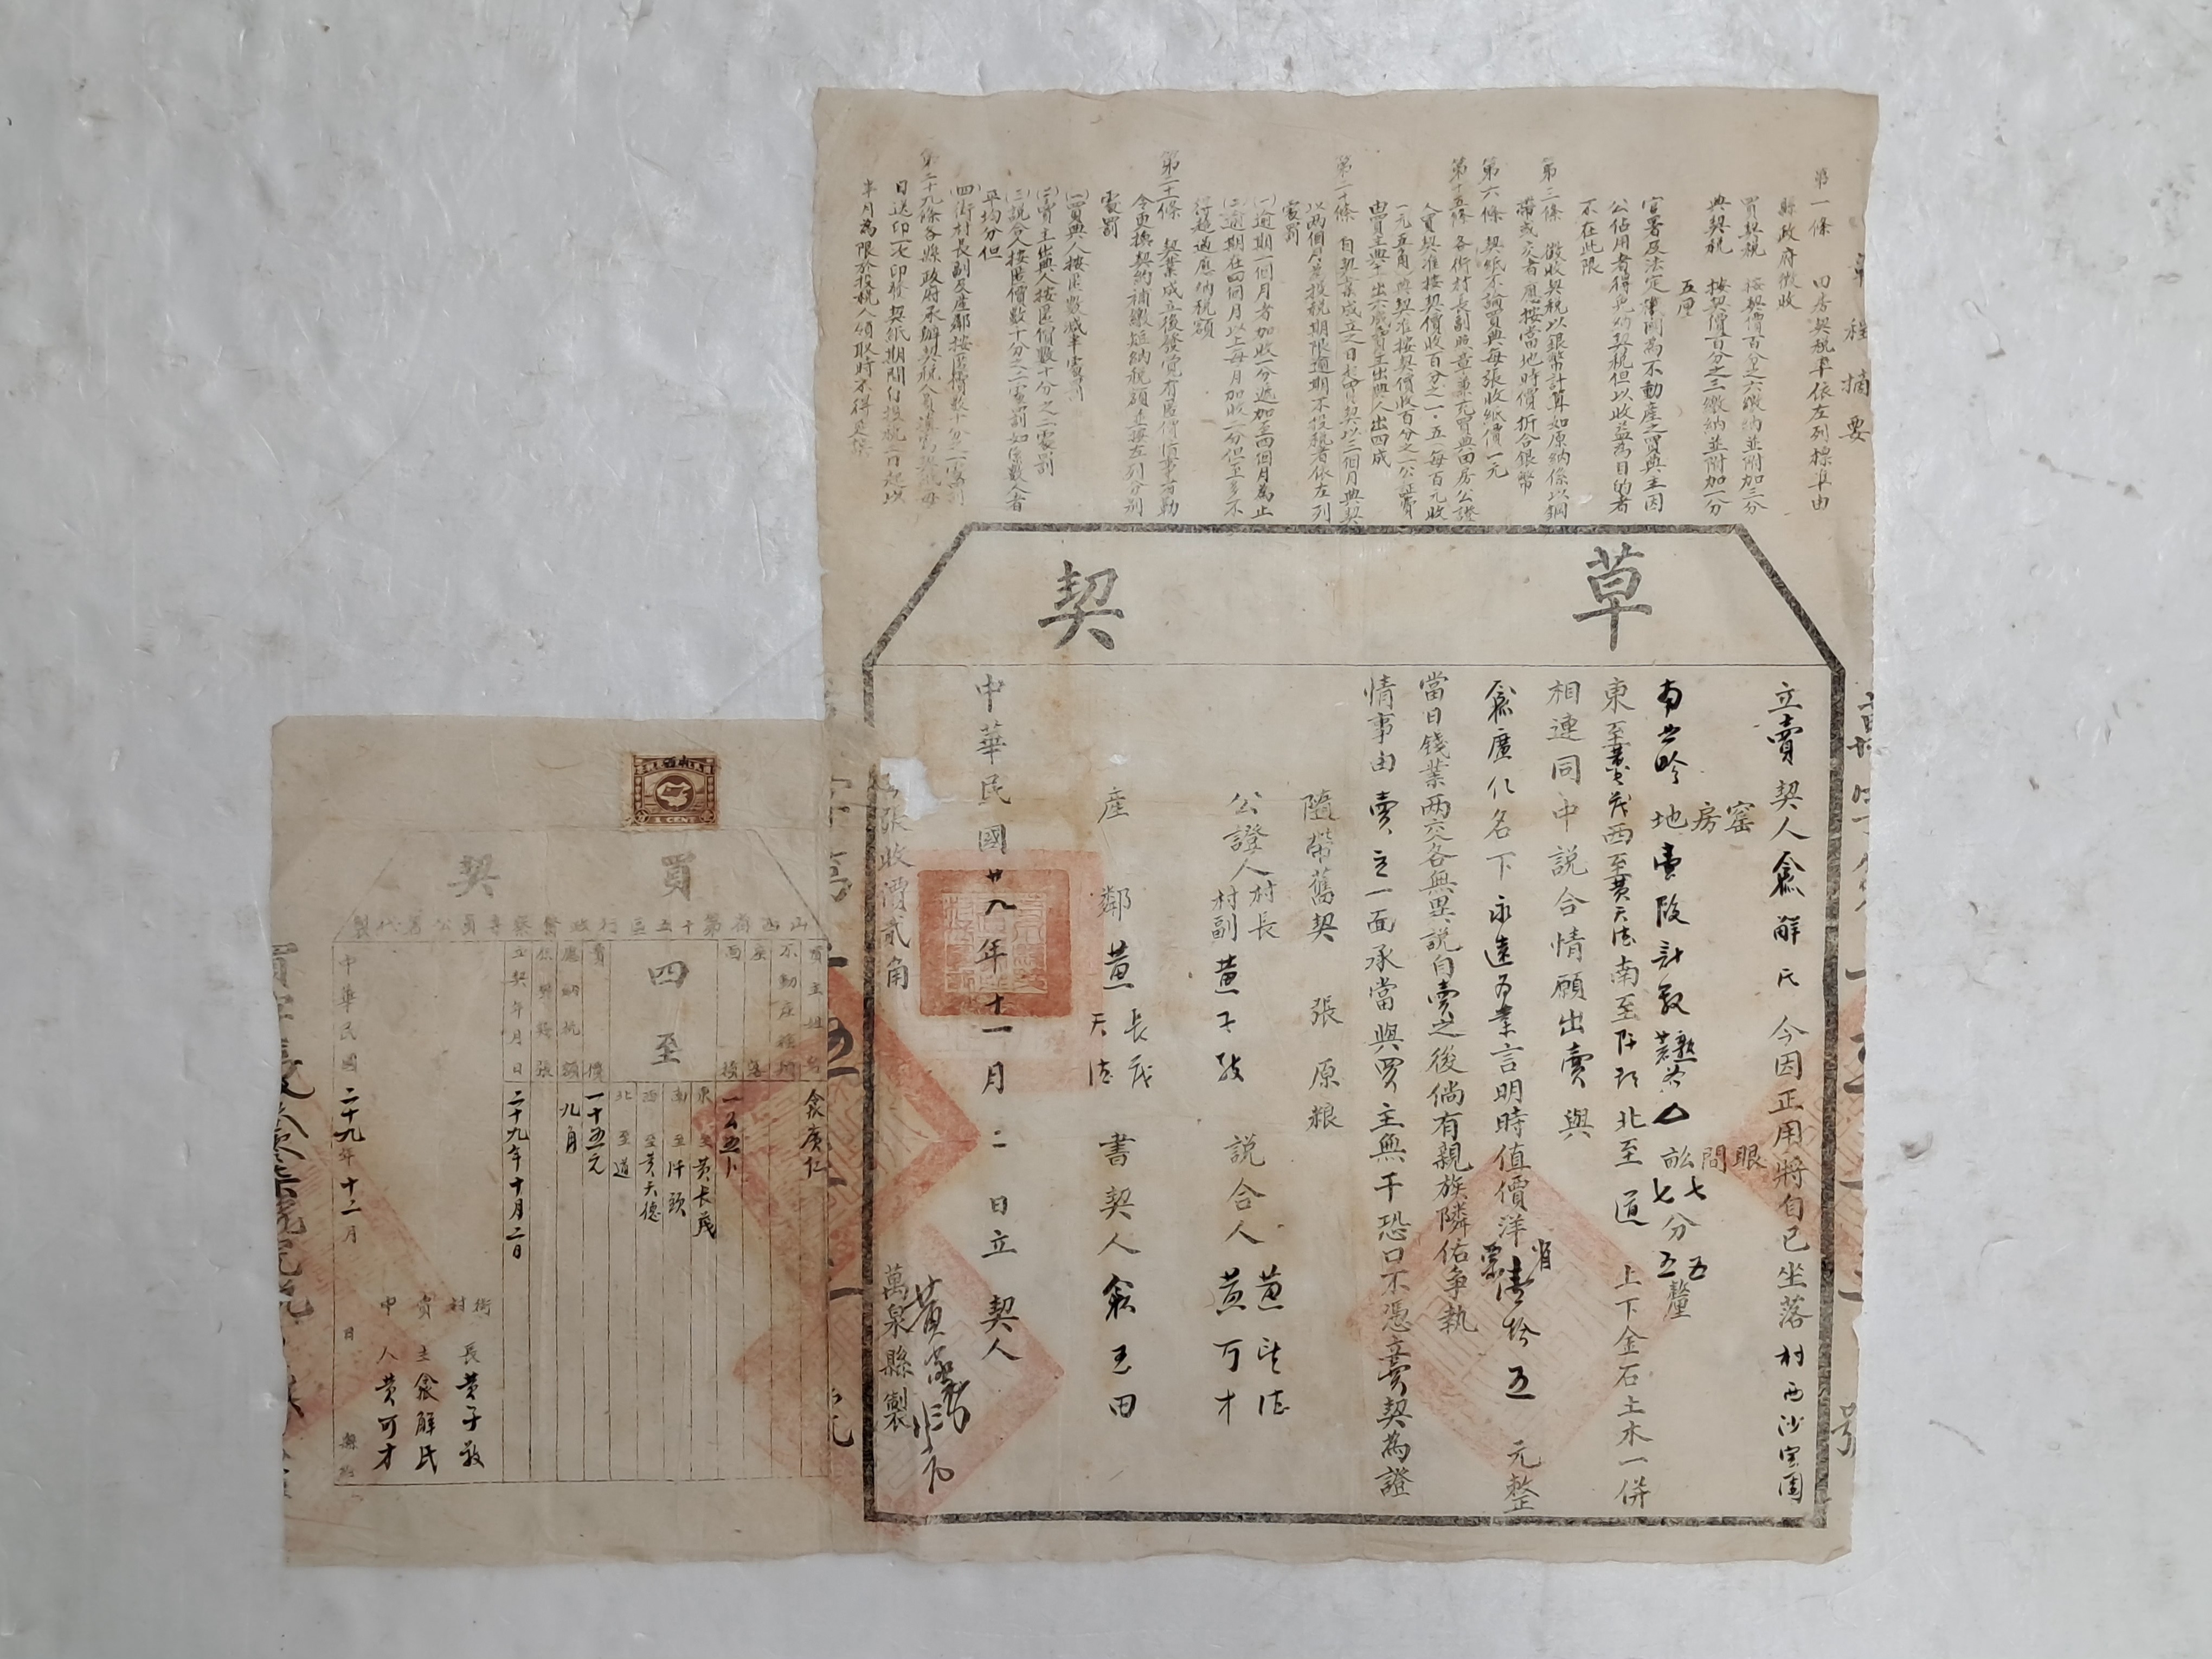 章程摘要
第一條 田房契稅率依左列標準由
縣政府徵收
買契稅 按契價百分之六繳納並附加三分
典契稅 按契價百分之三繳納並附加一分
五厘
官署及法定機關為不動產之買典主因
公佔用者得免納契稅但以收益為目的者
不在此限
第三條 徵收契稅以銀幣計算如原納係以銅
帶或交者應按當地時價折合銀幣
第六條 契紙不論買典每張收紙價一元
第十五條 各街村長副照章兼充買典田房公證
人買契准按契價收百分之一·五(每百元收
一元五角)典契准按契價收百分之一公証費
由買主典主出六成賣主出典人出四成
第二十條 自契業成立之日起買契以三個月典契
以兩個月為投稅期限逾期不投稅者依左列
處罰
(一)逾期一個月者加收一分遞加至四個月為止
(二)逾期在四個月以上每月加收二分但至多不
得超過應納稅額
第二十一條 契業成立後發覺有匿價情事者勒
令更換契約補繳短納稅額並按左列分別
處罰
(一)買典人按匿數減半處罰
(二)賣主出典人按匿價數十分之二處罰
(三)說合人按匿價數十分之二處罰如係數人者
平均分但
(四)街村長副及產鄰按匿價數十分之一處罰
第二十九條各縣政府承辦契稅人員填寫契紙每
日送印一次印發契紙期間自投稅之日起以
半月為限於投稅人領取時不得延誤
草契
立賣契人俞解氏今因正用將自己坐落村西沙
窑 眼
房 間
地壹段計數 畝七分五釐
東至黃長茂西至黃天德南至阡頭北至道 上下金石土木一併
相連同中說合情願出賣與
俞廣仁名下永遠為業言明時值價洋省票壹拾五元整
當日錢業两交各無異說自賣之後倘有親族隣佑争執
情事由賣主一面承當與買主無干恐口不憑立賣契為證
隨帶舊契 張 原粮
公證人 村長 村副 黃子敬 說合人 黃天德 黃可才
產鄰 黃長茂 天德 書契人 俞玉田
中華民國廿九年十一月二日立契人
每張收價貳角
萬泉縣製
號
買契
山西省第十五區行政督察專員公署代製
買主姓名 俞廣仁
不動產種類
座落
面積
四至
東至黃長茂
南至阡頭
西至黃天德
北至道
賣價 一十五元
應納稅額 九角
原契幾張
立契年月日 二十九年十月二日
中華民國二十九年十二月 日 縣給
街村長 黃子敬
賣主 俞解氏
中人 黃可才
1 CENT